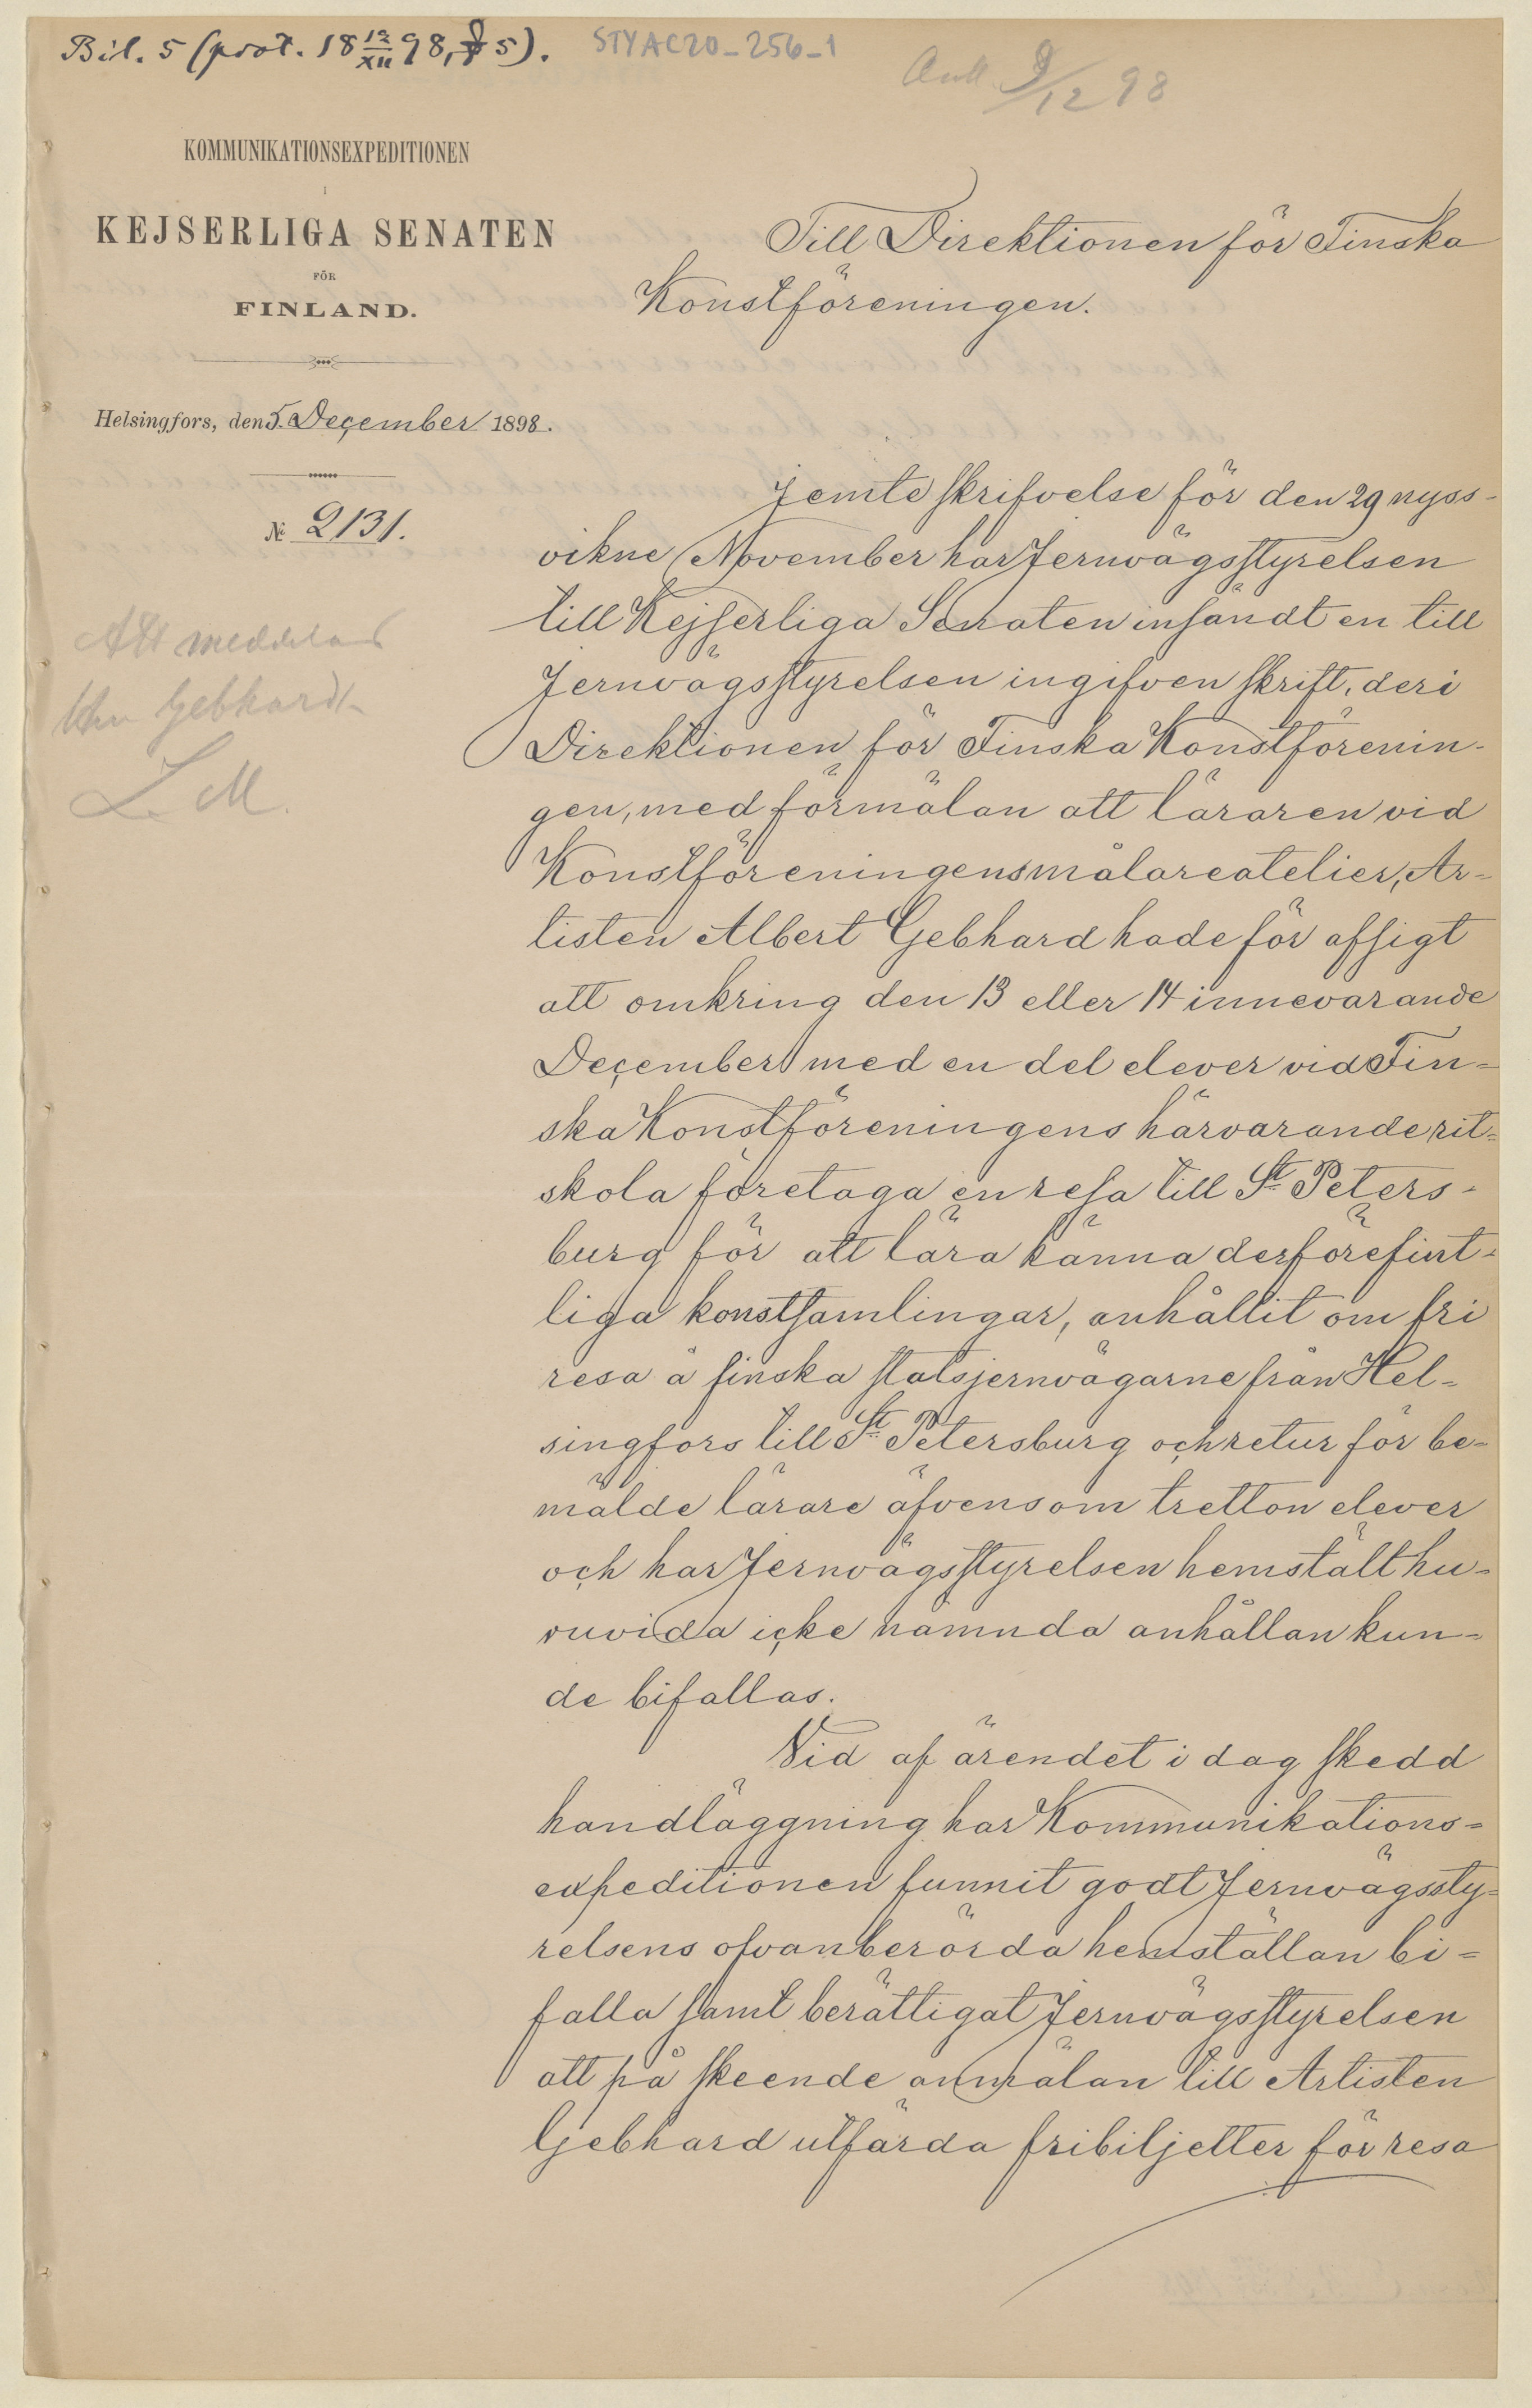 Bil. 5 (prot. 18 12/XII 98, § 5).
STYAC20_256_1
Ank. 9/12 98
KOMMUNIKATIONSEXPEDITIONEN
I
KEJSERLIGA SENATEN
FÖR
FINLAND.
Helsingfors, den 5. December 1898.
№ 2131.
Att meddelas
Gebhard
L. M.
Till Direktionen för Finska
Konstföreningen.
Jemte skrifvelse för den 29 nyss-
vikne November har Jernvägsstyrelsen
till Kejserliga Senaten insändt en till
Jernvägsstyrelsen ingifven skrift, deri
Direktionen för Finska Konstförenin-
gen, med förmälan att läraren vid
Konstföreningens målareatelier, Ar-
tisten Albert Gebhard hade för afsigt
att omkring den 13 eller 14 innevarande
December med en del elever vid Fin-
ska Konstföreningens härvarande rit-
skola företaga en resa till St Peters-
burg för att lära känna derförefint-
liga konstsamlingar, anhållit om fri
resa å finska statsjernvägarne från Hel-
singfors till St Petersburg och retur för be-
mälde lärare äfvensom tretton elever
och har Jernvägsstyrelsen hemstält hu-
ruvida icke nämnda anhållan kun-
de bifallas.
Vid af ärendet i dag skedd
handläggning har Kommunikations-
expeditionen funnit godt Jernvägssty-
relsens ofvanberörda hemställan bi-
falla samt berättigat Jernvägsstyrelsen
att på skeende anmälan till Artisten
Gebhard utfärda fribiljetter för resa